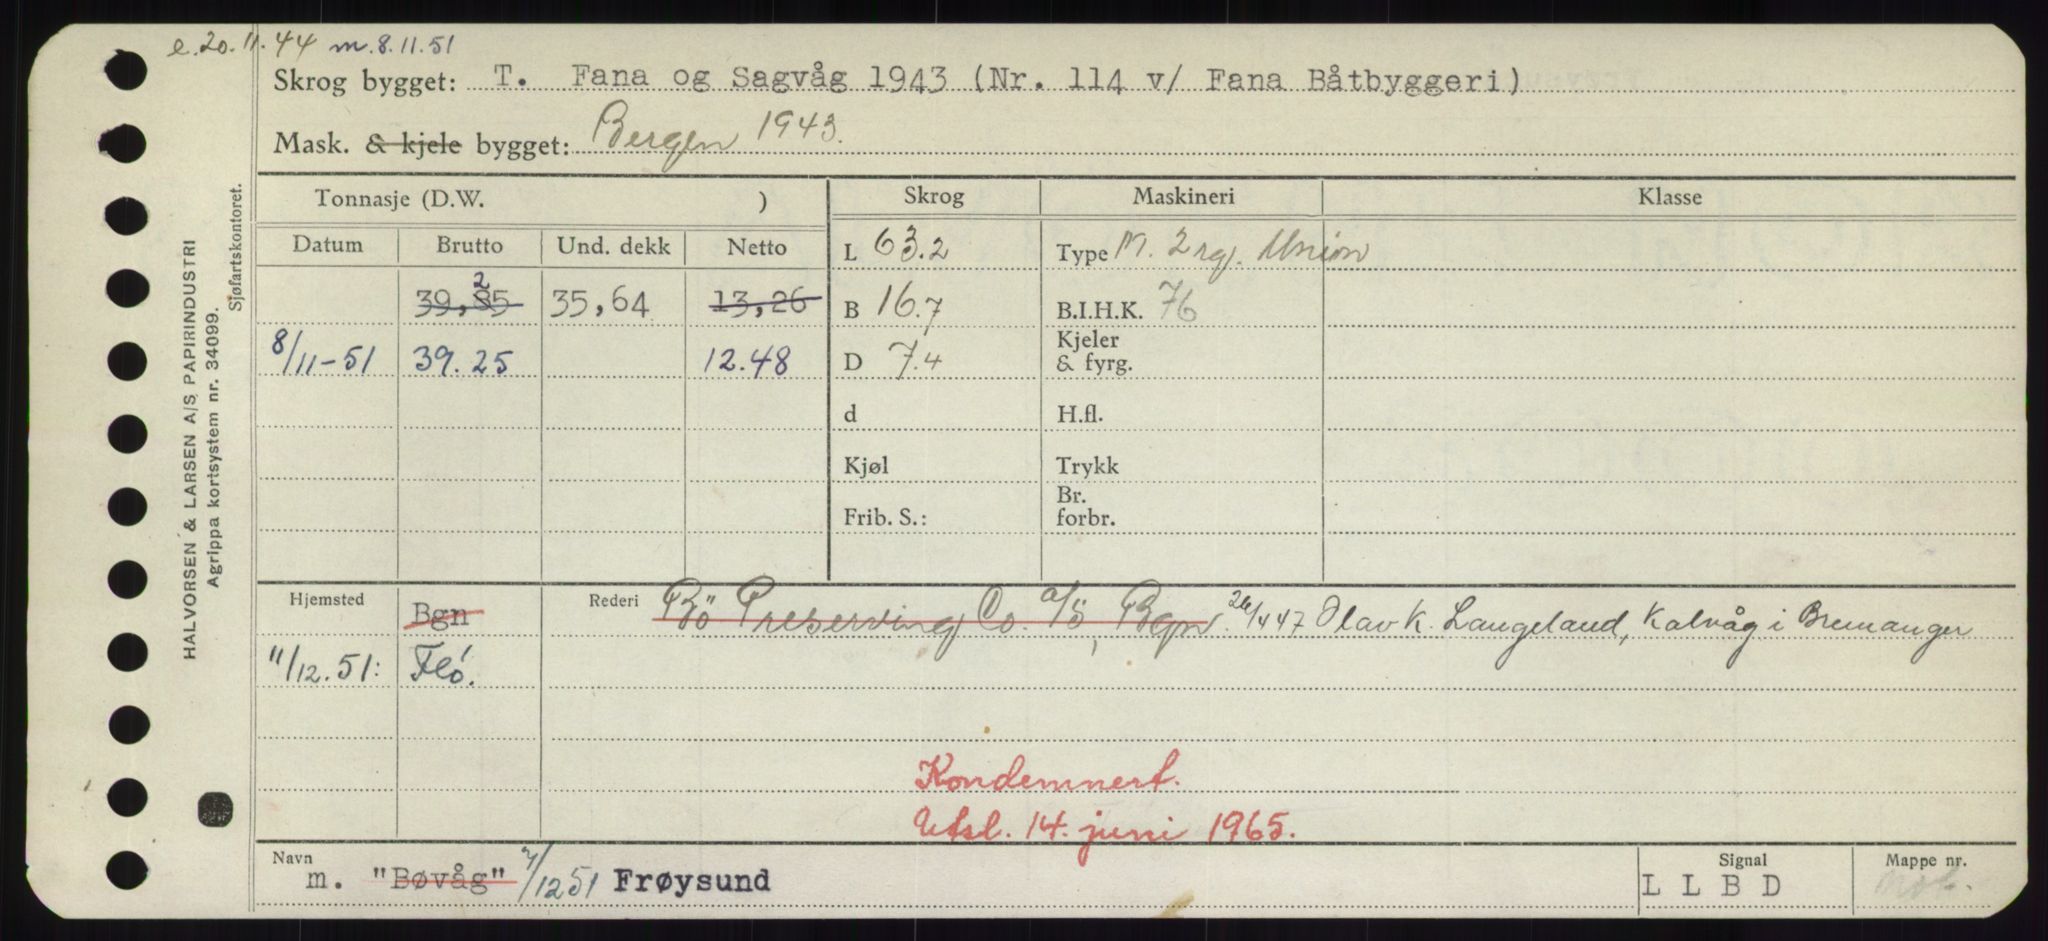 e. 20.11.44 m. 8.11.51
Skrog bygget: T. Fana og Sagvåg 1943 (Nr. 114 v/ Fana Båtbyggeri)
Mask. & kjele bygget: Bergen 1943.
Tonnasje (D.W. ) Skrog Maskineri Klasse
Datum Brutto Und. dekk Netto L 63.2 Type M. 2 rg. Union
2
39,85 35,64 13,26 B 16.7 B.I.H.K. 76
Kjeler
8/11-51 39.25 12.48 D 7.4 & fyrg.
d H.fl.
Kjøl Trykk
Br.
Frib. S.: forbr.
Hjemsted Bgn Rederi Bö Preserving Co. a/s, Bgn. 26/4 47 Olav K. Langeland, Kalvåg i Bremanger
11/12.51: Flö.
Kondemnert.
Utsl. 14. juni 1965.
Navn Signal Mappe nr.
m. "Bøvåg" 7/12 51 Frøysund L L B D
HALVORSEN & LARSEN A/S PAPIRINDUSTRI
Agrippa kortsystem nr. 34099.
Sjøfartskontoret.